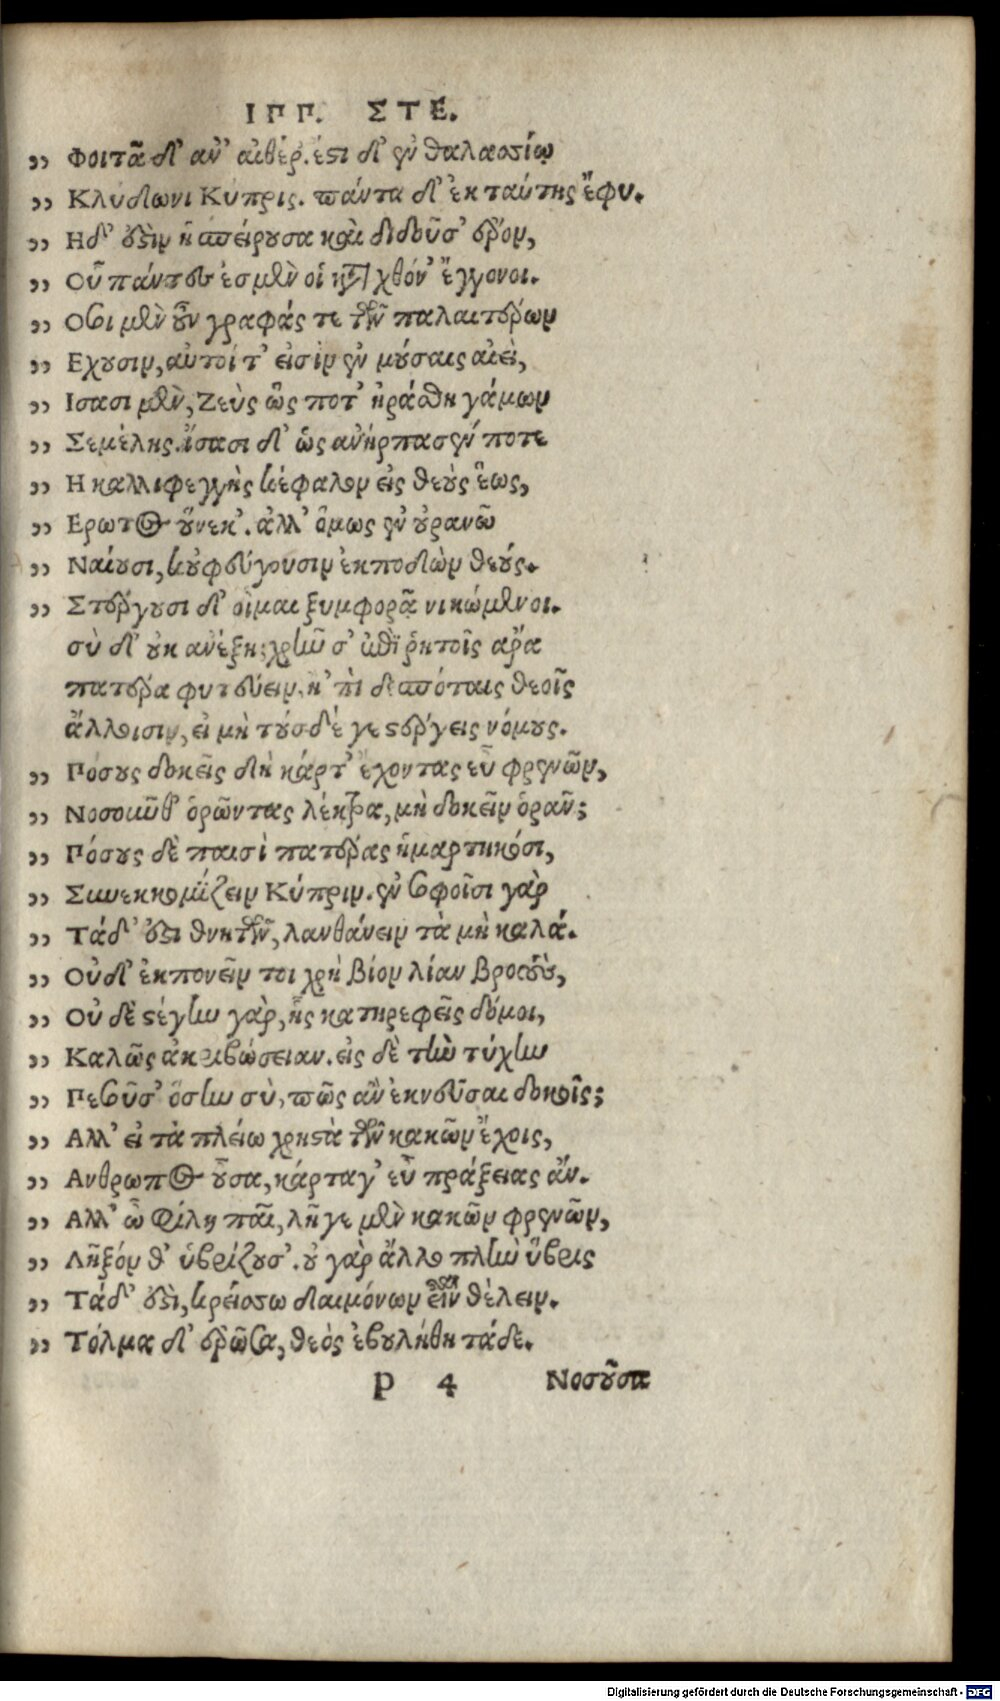 ΙΠΠ. ΣΤΕ.
„ Φοιτᾷ δ᾽ ἀν᾽ αἰθέρ. ἔστι δ᾽ ἐν θαλασσίῳ
„ Κλύδωνι Κύπρις. πάντα δ᾽ ἐκ ταύτης ἔφυ.
„ Ηδ᾽ ἐστὶν ἡ σπείρουσα καὶ διδοῦσ᾽ ἔρον,
„ Οὗ πάντες ἐσμὲν οἱ κατὰ χθόν᾽ ἔγγονοι.
„ Οσοι μὲν οὖν γραφάς τε τῶν παλαιτέρων
„ Εχουσιν, αὐτοί τ᾽ εἰσὶν ἐν μούσαις αἰεὶ,
„ Ισασι μὲν, Ζεὺς ὥς ποτ᾽ ἠράσθη γάμων
„ Σεμέλης. ἴσασι δ᾽ ὡς ἀνήρπασέν ποτε
„ Η καλλιφεγγὴς κέφαλον εἰς θεοὺς ἕως,
„ Ερωτος οὕνεκ᾽. ἀλλ᾽ ὅμως ἐν οὐρανῷ
„ Ναίουσι, κοὐ φεύγουσιν ἐκποδὼν θεούς.
„ Στέργουσι δ᾽ οἶμαι ξυμφορᾷ νικώμενοι.
σὺ δ᾽ οὐκ ἀνέξῃ; χρῆν σ᾽ ἐπὶ ῥητοῖς ἄρα
πατέρα φυτεύειν, ἢ ᾽πὶ δεσπόταις θεοῖς
ἄλλοισιν, εἰ μὴ τούσδέ γε στέργεις νόμους.
„ Πόσους δοκεῖς δὴ κάρτ᾽ ἔχοντας εὖ φρενῶν,
„ Νοσοῦνθ᾽ ὁρῶντας λέκτρα, μὴ δοκεῖν ὁρᾶν;
„ Πόσους δὲ παισὶ πατέρας ἡμαρτηκόσι,
„ Συνεκκομίζειν Κύπριν. ἐν σοφοῖσι γὰρ
„ Τάδ᾽ ἐστὶ θνητῶν, λανθάνειν τὰ μὴ καλά.
„ Οὐδ᾽ ἐκπονεῖν τοι χρὴ βίον λίαν βροτοὺς,
„ Οὐδὲ στέγην γὰρ, ἧς κατηρεφεῖς δόμοι,
„ Καλῶς ἀκριβώσειαν. εἰς δὲ τὴν τύχην
„ Πεσοῦσ᾽ ὅσην σὺ, πῶς ἂν ἐκνεῦσαι δοκοῖς;
„ Αλλ᾽ εἰ τὰ πλείω χρηστὰ τῶν κακῶν ἔχοις,
„ Ανθρωπος οὖσα, κάρτα γ᾽ εὖ πράξειας ἄν.
„ Αλλ᾽ ὦ φίλη παῖ, λῆγε μὲν κακῶν φρενῶν,
„ Λῆξόν θ᾽ ὑβρίζουσ᾽. οὐ γὰρ ἄλλο πλὴν ὕβρις
„ Τάδ᾽ ἐστὶ, κρείσσω δαιμόνων εἶναι θέλειν.
„ Τόλμα δ᾽ ἐρῶσα, θεὸς ἐβουλήθη τάδε.
p 4 Νοσοῦσα
Digitalisierung gefördert durch die Deutsche Forschungsgemeinschaft - DFG